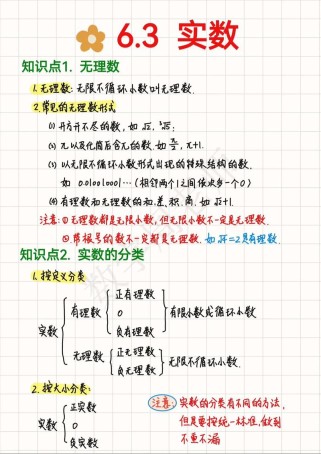 6.3 实数
知识点1. 无理数
1.无理数: 无限不循环小数叫无理数.
2.常见的无理数形式
(1) 开方开不尽的数,如
(2) π以及化简后含π的数.如 π/2, π+1.
(3) 以无限不循环小数形式出现的特殊结构的数.
如 0.010010001…(相邻两个1之间依次多一个0)
(4) 有理数和无理数的和、差、积、商,如√2+1.
注意: ①无理数都是无限小数,但无限小数不一定是无理数.
②带根号的数不一定都是无理数. 如√4=2是有理数.
知识点2. 实数的分类
1.按定义分类
实数 有理数 正有理数 0 负有理数 有限小数或循环小数
无理数 正无理数 负无理数 无限不循环小数.
2.按大小分类:
实数 正实数 0 负实数
注意: 实数的分类有不同的方法,
但是要按统一标准,做到
不重不漏